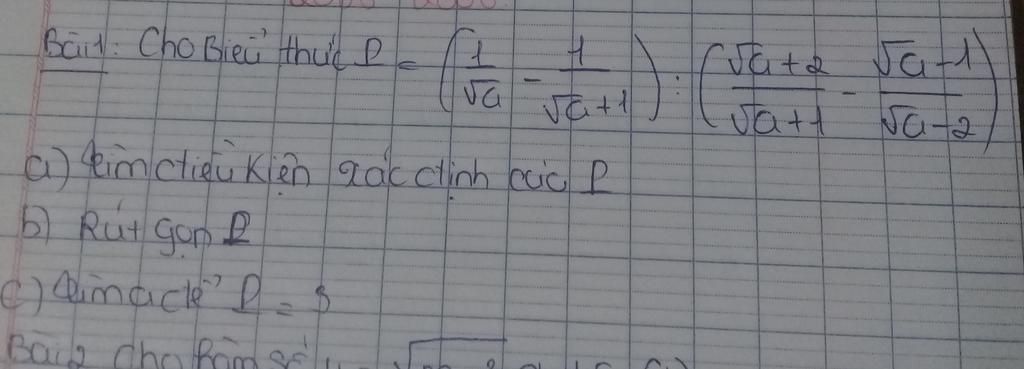 Bài 1: Cho Biểu thức P = (1/√a - 1/(√a+1)) : ((√a+2)/(√a+1) - (√a-1)/(√a-2))
a) tìm điều kiện xác định các P
b) Rút gọn P
c) tìm a để P =
Bài 2 cho hàm số